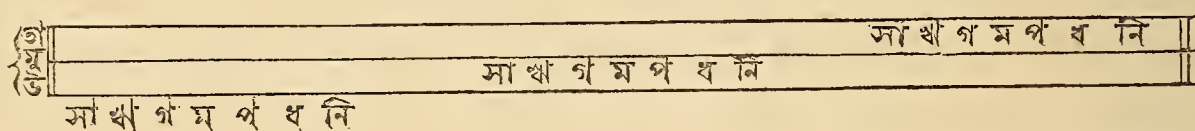 সা ঋ গ ম প ধ নি
সা ঋ গ ম প ধ নি
সা ঋ গ ম প ধ নি